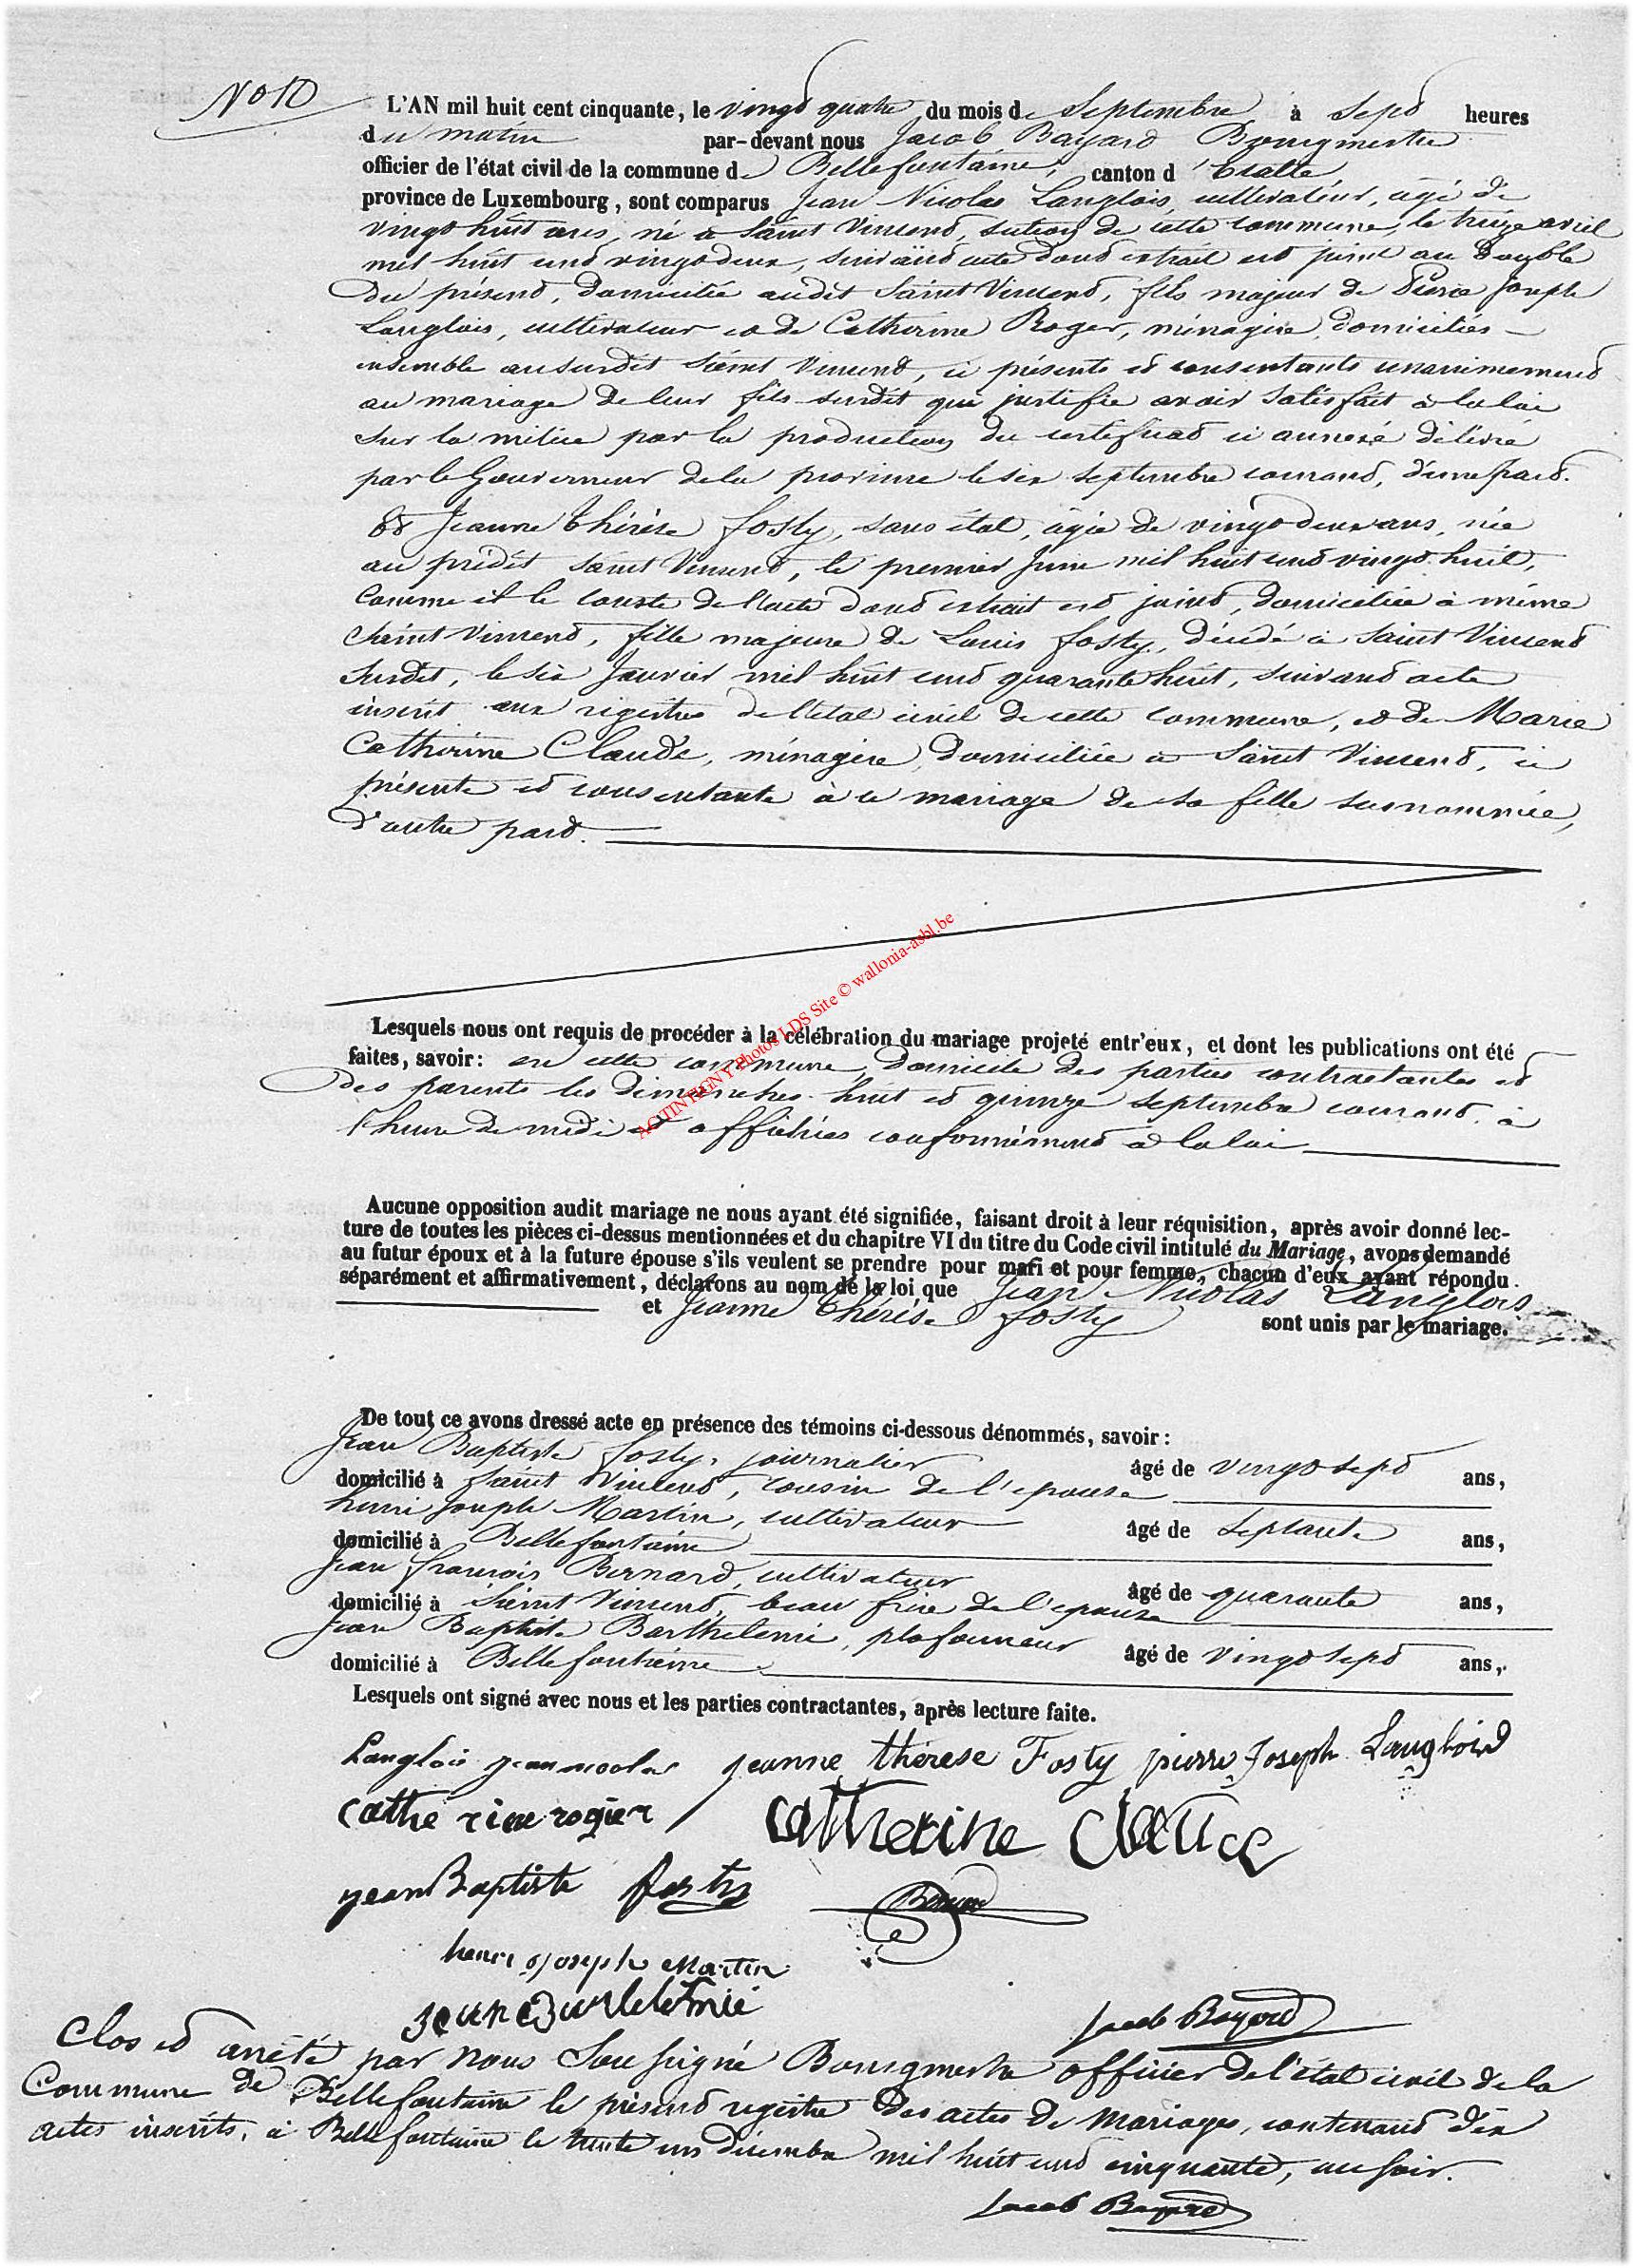 No 10
L'AN mil huit cent cinquante, le vingt quatre du mois de Septembre à sept heures
du matin par-devant nous Jacob Bayard Bourgmestre
officier de l'état civil de la commune de Bellefontaine, canton d'Etalle
province de Luxembourg, sont comparus Jean Nicolas Langlois, cultivateur, âgé de
vingt huit ans, né à Saint Vincent, section de cette commune, le treize avril
mil huit cent vingt deux, suivant acte dont extrait est joint au double
du présent, domicilié audit Saint Vincent, fils majeur de Pierre Joseph
Langlois, cultivateur et de Catherine Roger, ménagère, domiciliés
ensemble ausurdit Saint Vincent, ici présents et consentants unanimement
au mariage de leur fils surdit qui justifie avoir satisfait à la loi
sur la milice par la production du certificat ci annexé délivré
par le Gouverneur de la province le six septembre courant, d'une part.
Et Jeanne Thérèse Fosty, sans état, âgée de vingt deux ans, née
au prédit Saint Vincent, le premier Juin mil huit cent vingt huit,
comme il le conste de l'acte dont extrait est joint, domiciliée à même
Saint Vincent, fille majeure de Louis Fosty, décédé à Saint Vincent
surdit, le six Janvier mil huit cent quarante huit, suivant acte
inscrit aux registres de l'état civil de cette commune, et de Marie
Catherine Claude, ménagère, domiciliée à Saint Vincent, ici
présente et consentante à ce mariage de sa fille surnommée,
d'autre part.
Lesquels nous ont requis de procéder à la célébration du mariage projeté entr'eux, et dont les publications ont été
faites, savoir: en cette commune, domicile des parties contractantes et
des parents les dimanches huit et quinze septembre courant à
l'heure de midi et affichées conformément à la loi
Aucune opposition audit mariage ne nous ayant été signifiée, faisant droit à leur réquisition, après avoir donné lec-
ture de toutes les pièces ci-dessus mentionnées et du chapitre VI du titre du Code civil intitulé du Mariage, avons demandé
au futur époux et à la future épouse s'ils veulent se prendre pour mari et pour femme, chacun d'eux ayant répondu
séparément et affirmativement, déclarons au nom de la loi que Jean Nicolas Langlois
et Jeanne Thérèse Fosty sont unis par le mariage.
De tout ce avons dressé acte en présence des témoins ci-dessous dénommés, savoir:
Jean Baptiste Fosty, journalier âgé de vingt sept ans,
domicilié à Saint Vincent, cousin de l'épouse
henri Joseph Martin, cultivateur âgé de Septante ans,
domicilié à Bellefontaine
Jean françois Bernard, cultivateur âgé de quarante ans,
domicilié à Saint Vincent, beau frère de l'épouse
Jean Baptiste Barthelemi, plafonneur âgé de vingt sept ans,
domicilié à Bellefontaine
Lesquels ont signé avec nous et les parties contractantes, après lecture faite.
Langlois jean nicolas jeanne thérese Fosty pierre Joseph Langlois
catherine rogier catherine claude
jean Baptiste fosty Bernard
henri joseph Martin
Jacob Bayard
Clos et arrêté par nous Soussigné Bourgmestre officier de l'état civil de la
Commune de Bellefontaine le présent registre des actes de mariages, contenant dix
actes inscrits, à Bellefontaine le trente un décembre mil huit cent cinquante, au soir.
Jacob Bayard
ACTINTIGNY Photos LDS Site © wallonia-asbl.be